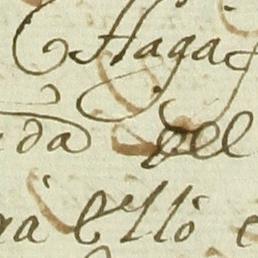 Haga
da del
ra Ello e